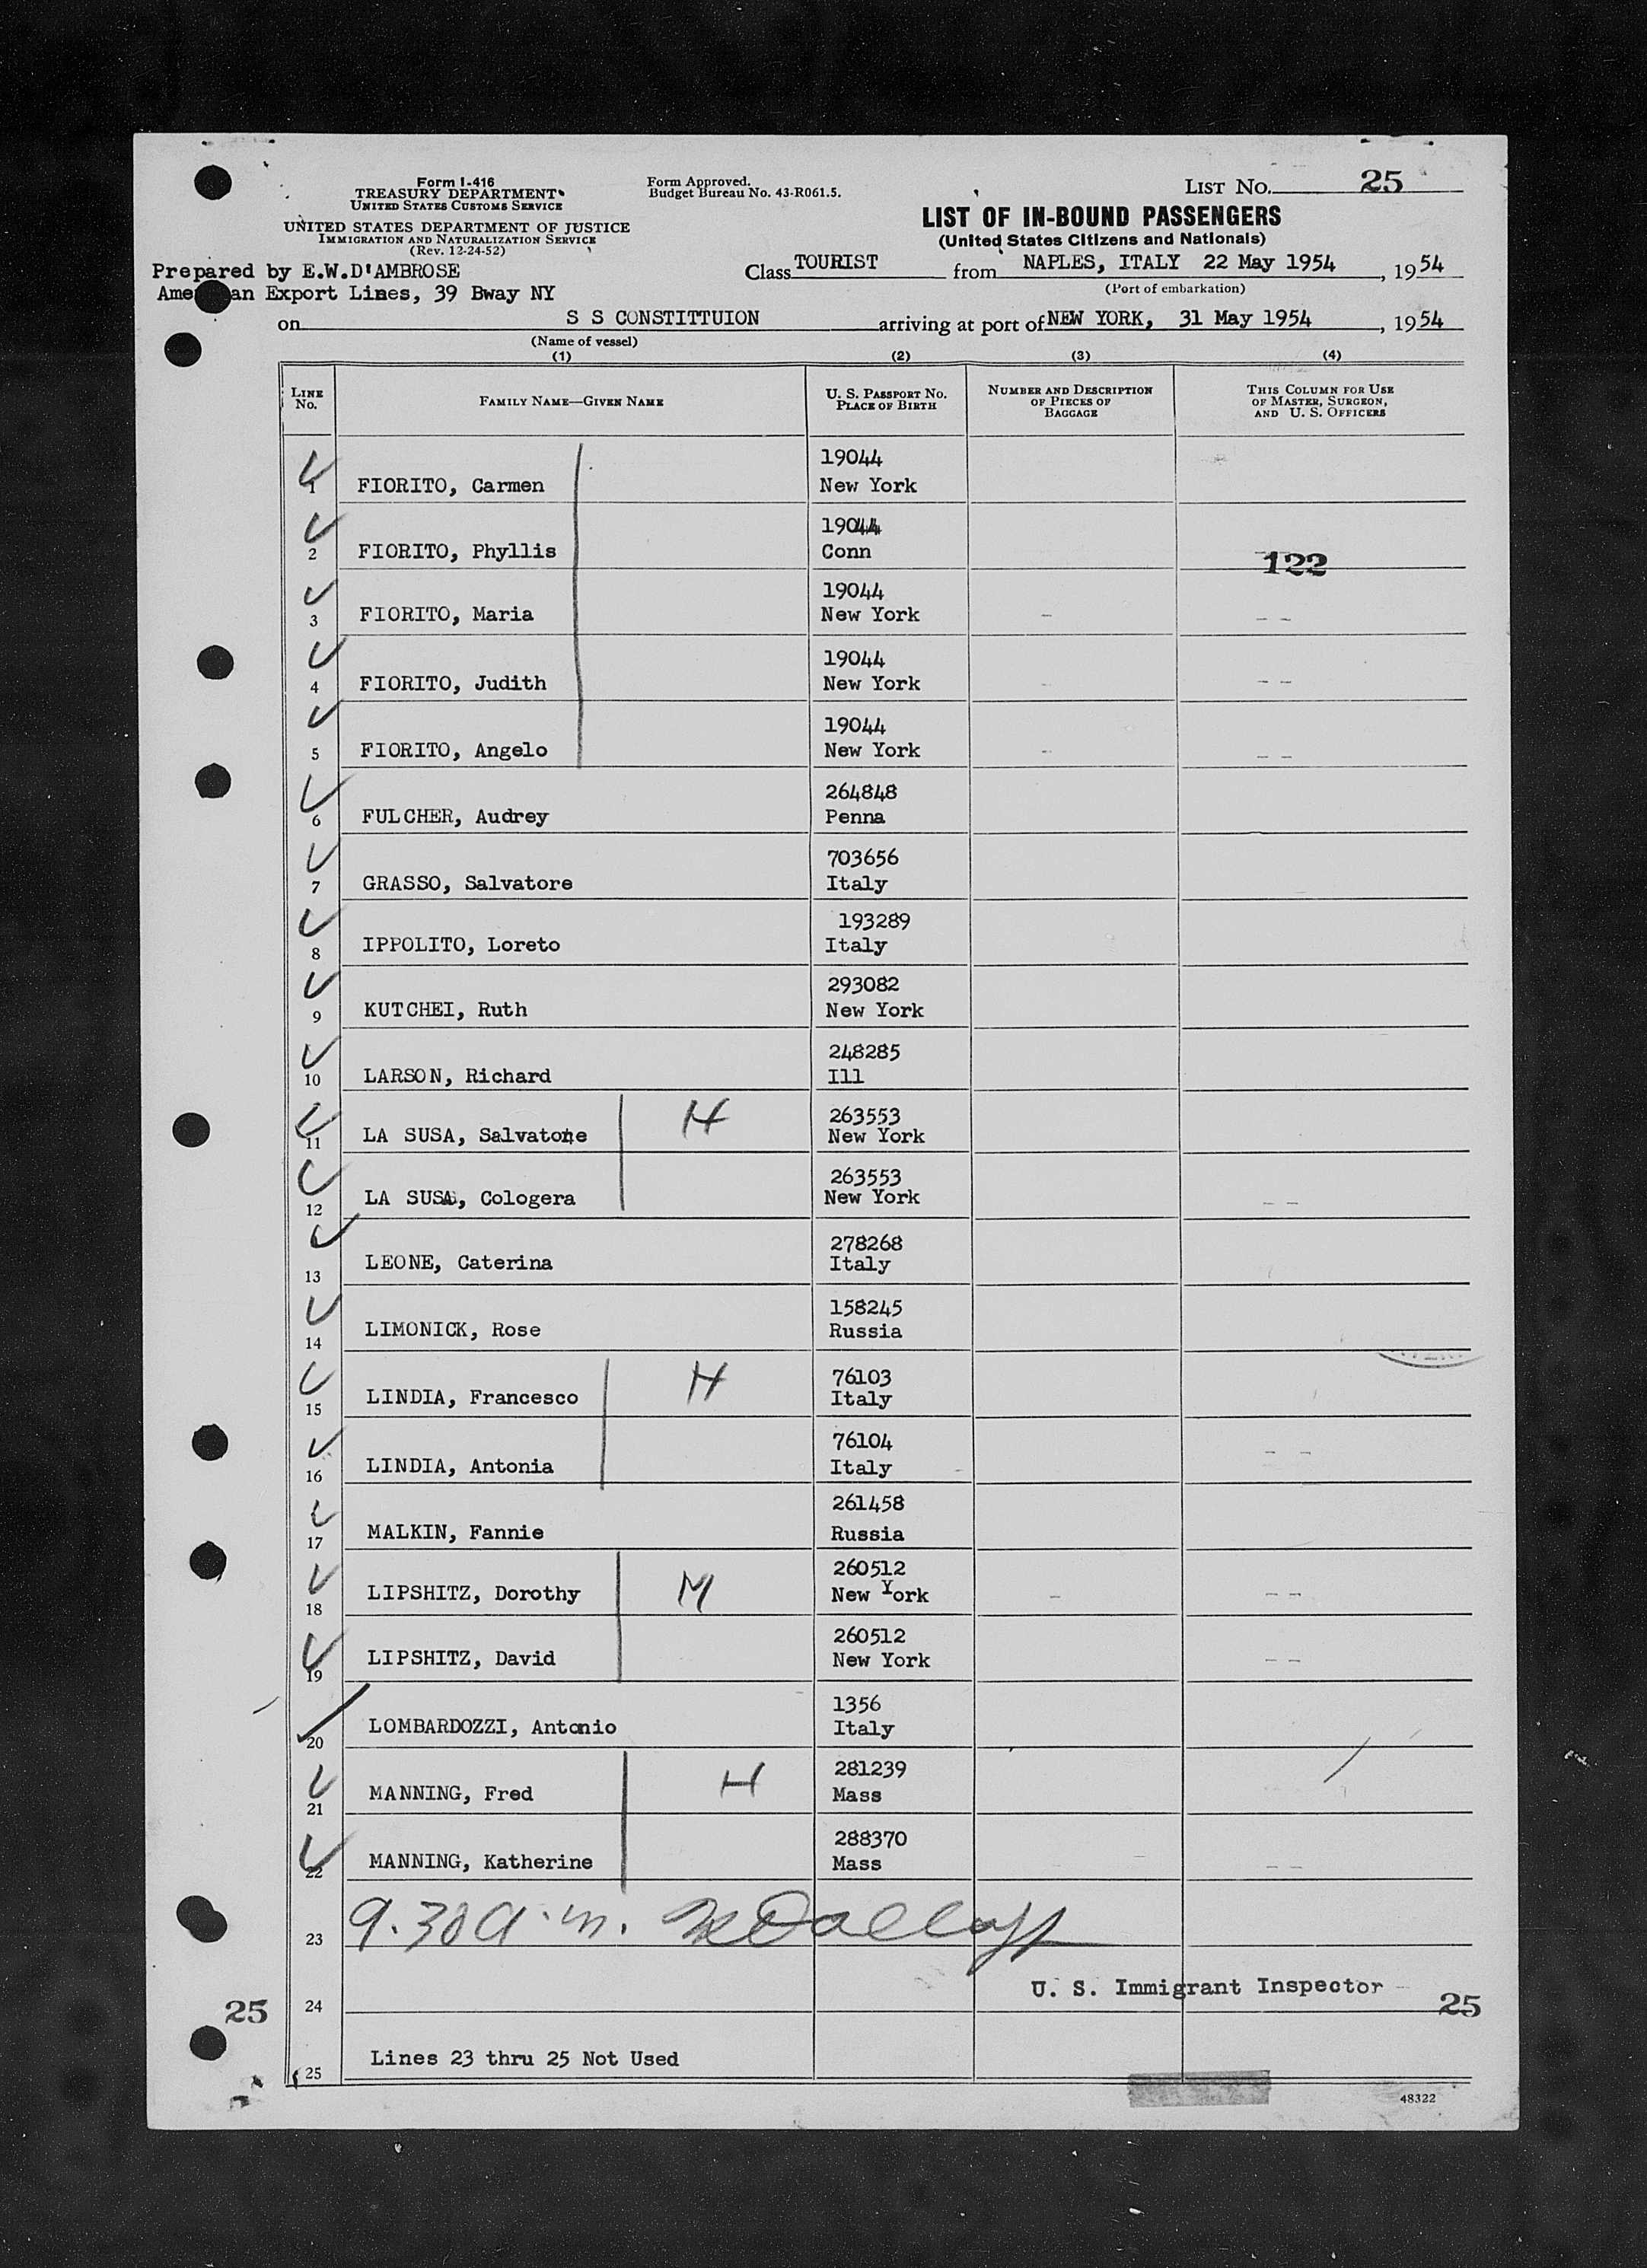 Form I-416
TREASURY DEPARTMENT
UNITED STATES CUSTOMS SERVICE
UNITED STATES DEPARTMENT OF JUSTICE
IMMIGRATION AND NATURALIZATION SERVICE
(Rev. 12-24-52)
Form Approved.
Budget Bureau No. 43-R061.5.
LIST NO. 25
LIST OF IN-BOUND PASSENGERS
(United States Citizens and Nationals)
Prepared by E.W.D'AMBROSE
American Export Lines, 39 Bway NY
Class TOURIST from NAPLES, ITALY 22 May 1954, 1954
(Port of embarkation)
on S S CONSTITTUION arriving at port of NEW YORK, 31 May 1954, 1954
(Name of vessel)
(1) (2) (3) (4)
LINE NO. FAMILY NAME—GIVEN NAME U. S. PASSPORT NO. PLACE OF BIRTH NUMBER AND DESCRIPTION OF PIECES OF BAGGAGE THIS COLUMN FOR USE OF MASTER, SURGEON, AND U. S. OFFICERS
19044
1 FIORITO, Carmen New York
19044
2 FIORITO, Phyllis Conn
122
19044
3 FIORITO, Maria New York
19044
4 FIORITO, Judith New York
19044
5 FIORITO, Angelo New York
264848
6 FULCHER, Audrey Penna
703656
7 GRASSO, Salvatore Italy
193289
8 IPPOLITO, Loreto Italy
293082
9 KUTCHEI, Ruth New York
248285
10 LARSON, Richard Ill
263553
11 LA SUSA, Salvatore H New York
263553
12 LA SUSA, Cologera New York
278268
13 LEONE, Caterina Italy
158245
14 LIMONICK, Rose Russia
76103
15 LINDIA, Francesco H Italy
76104
16 LINDIA, Antonia Italy
261458
17 MALKIN, Fannie Russia
260512
18 LIPSHITZ, Dorothy M New York
260512
19 LIPSHITZ, David New York
1356
20 LOMBARDOZZI, Antonio Italy
281239
21 MANNING, Fred H Mass
288370
22 MANNING, Katherine Mass
23 9.30 a.m.
U. S. Immigrant Inspector
25 24 25
Lines 23 thru 25 Not Used
25
48322